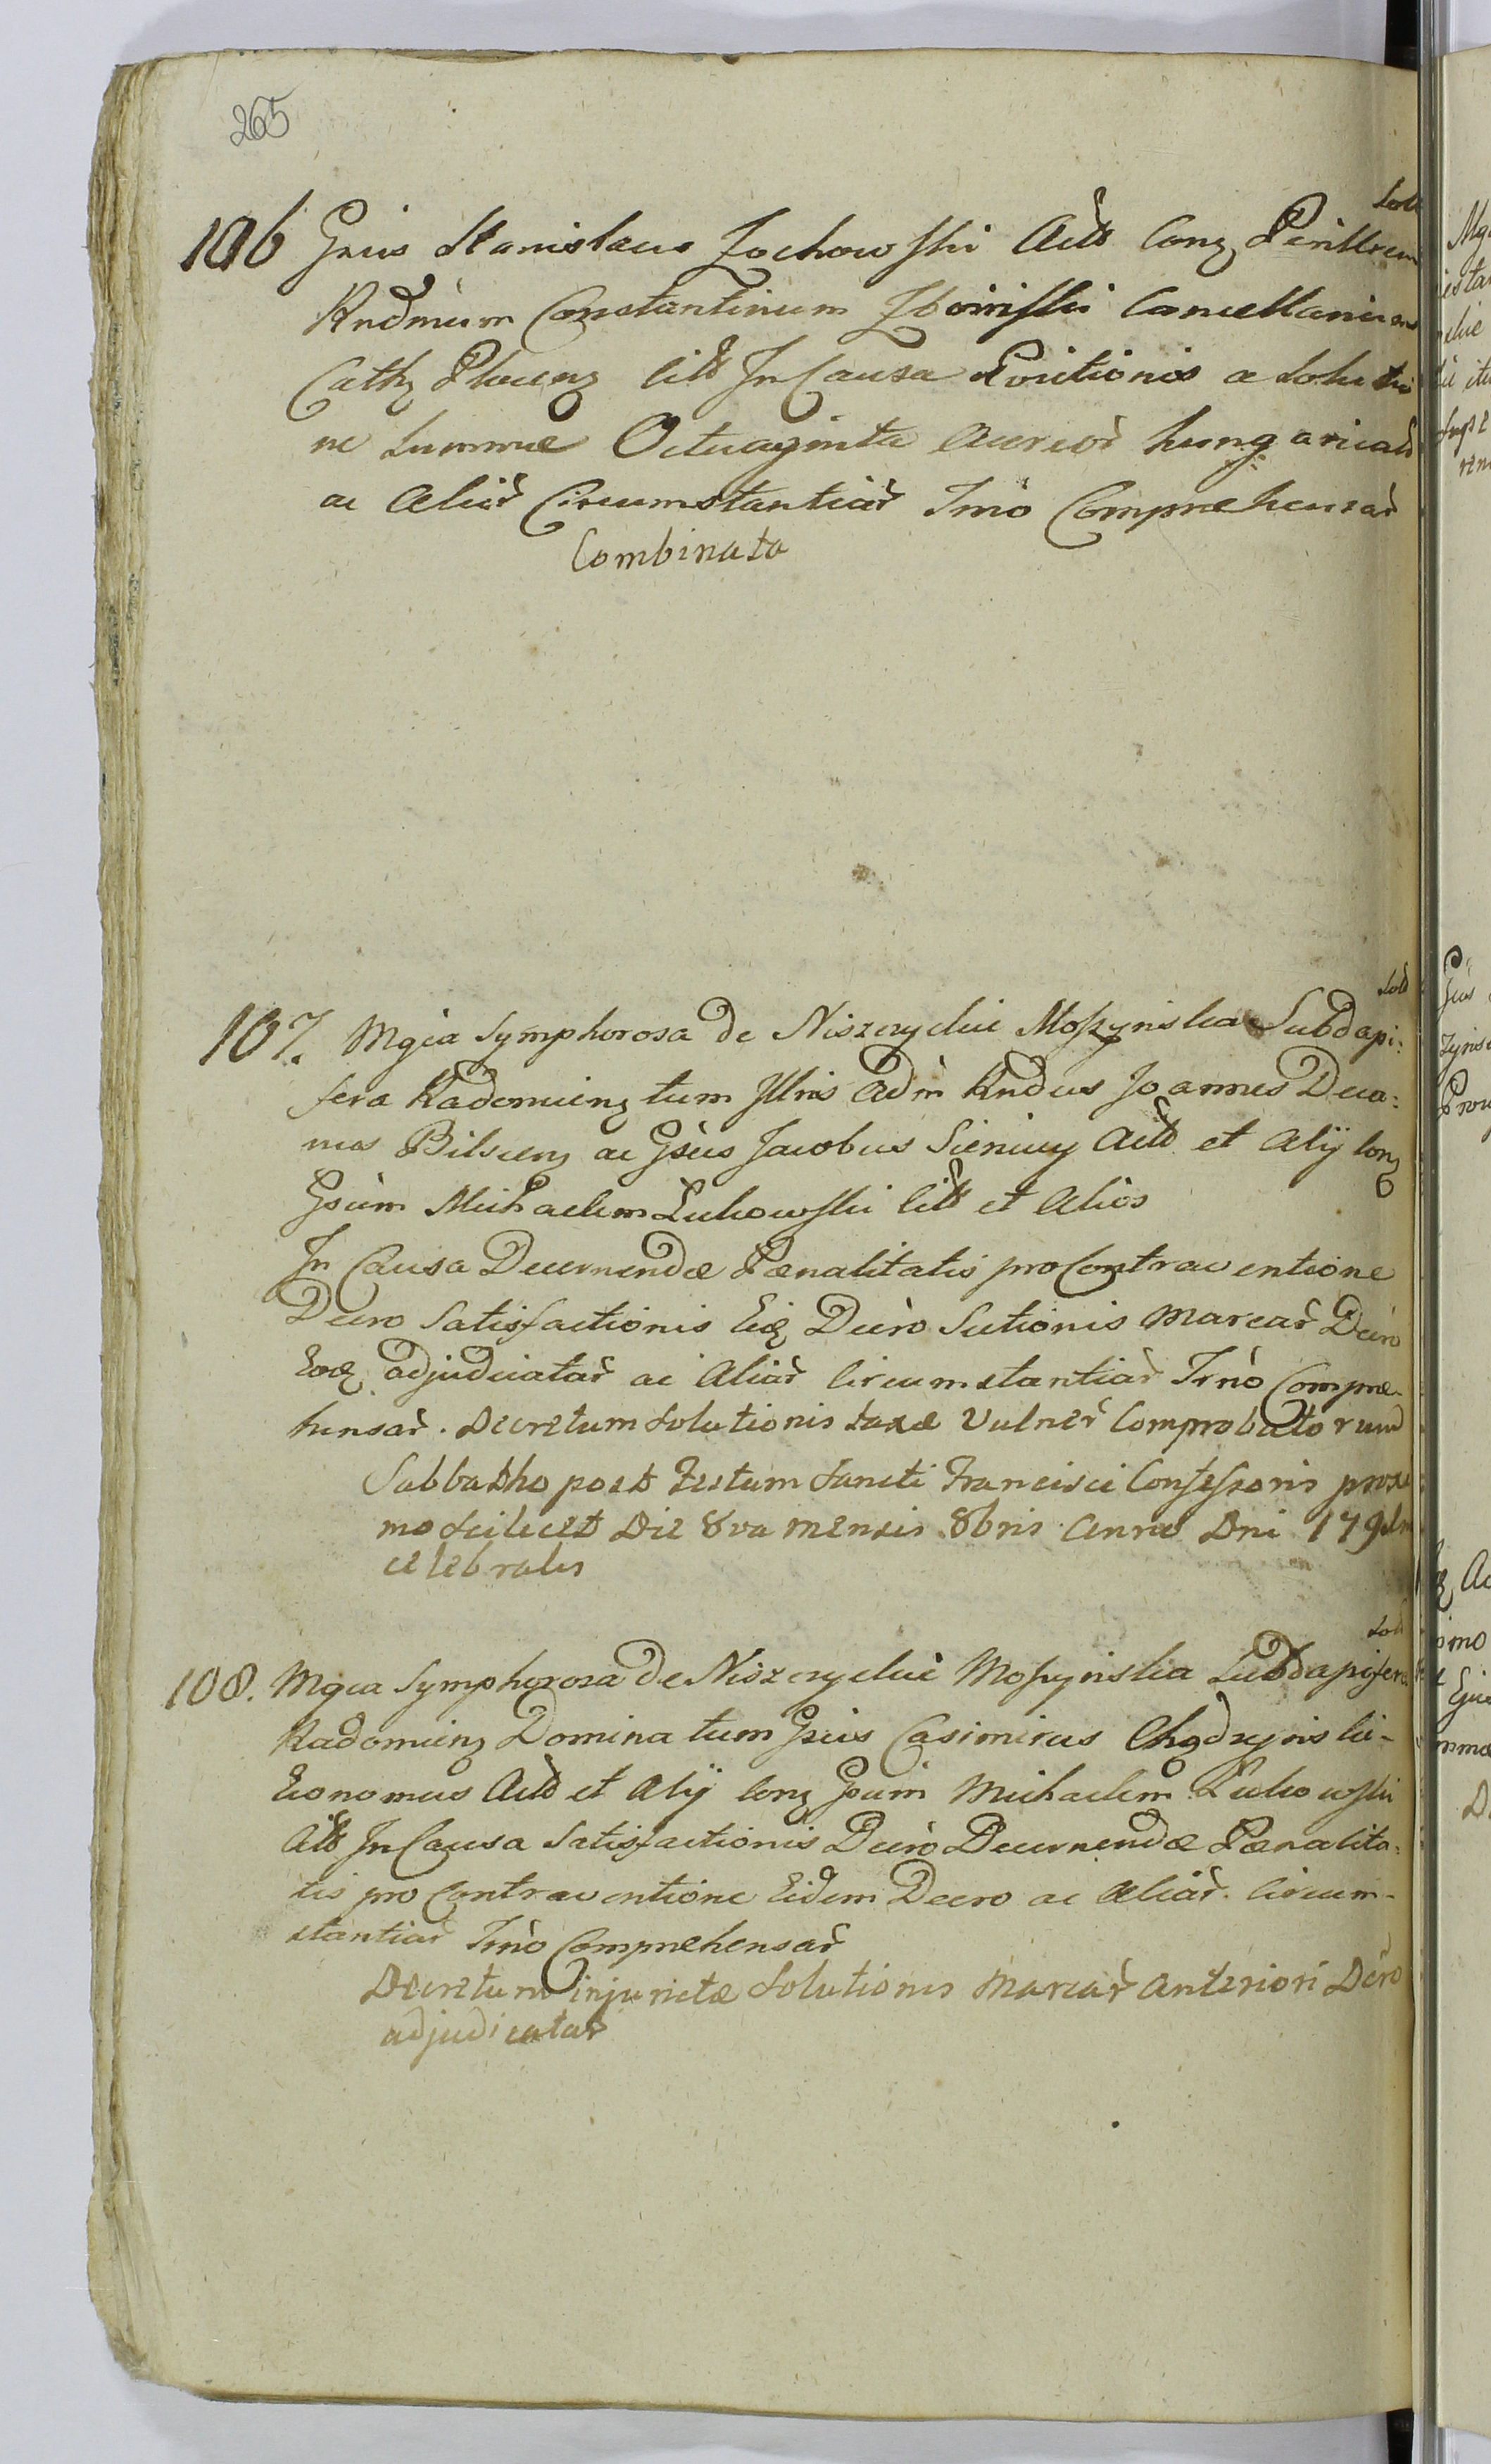 265
Solt
106 Gnus Stanislaus Zochowski Actt Conz Perillrem
Rndmum Constantinum Zboinski Cancellarium
Cathz Plocenz Citt In Causa Evictionis a Soluti
ne Summæ Octuaginta Aureor̃ hungarical̃
ac Aliar̃ Circumstantiar̃ Tmo Comprehensar̃
Combinata
Solt
107. Mgca Symphorosa de Niszczyckie Moszynska Subdapi:
fera Radomienz tum Illris Adm Rndus Joannes Deca:
nus Bilscenz ac Gsus Jacobus Sienicy Actt et Alÿ Conz
Gsum Michaelem Lukowski Citt et Alios
In Causa Decernendæ Pænalitatis pro Contraventione
Decro Satisfactionis Eiq Decro Sutionis Marcar̃ Decro
Eoq adjudicatar̃ ac Aliar̃ Circumstantiar̃ Trno Compre-
hensar̃. Decretum Solutionis taxæ Vulner̃ Comprobatorum
Sabbatho post Festum Sancti Francisci Confessoris proxi
mo scilicet Die 8va mensis 8bris Anno Dni 179
celebrales
Solt
108. Mgca Symphorosa de Niszczyckie Moszynska Subdapifera
Radomienz Domina tum Gsus Casimirus Chądzynski-
Economus Actt et Alÿ Conz Gsum Michaelem Lukowski
Citt In Causa Satisfactionis Decro Decernendæ Pænalita:
tis pro Contraventione Eidem Decro ac Aliar̃. Circum-
stantiar̃ Trno Comprehensar̃
Decretum injunctæ Solutionis Marcar̃ Anteriori Decro
adjudicatar̃